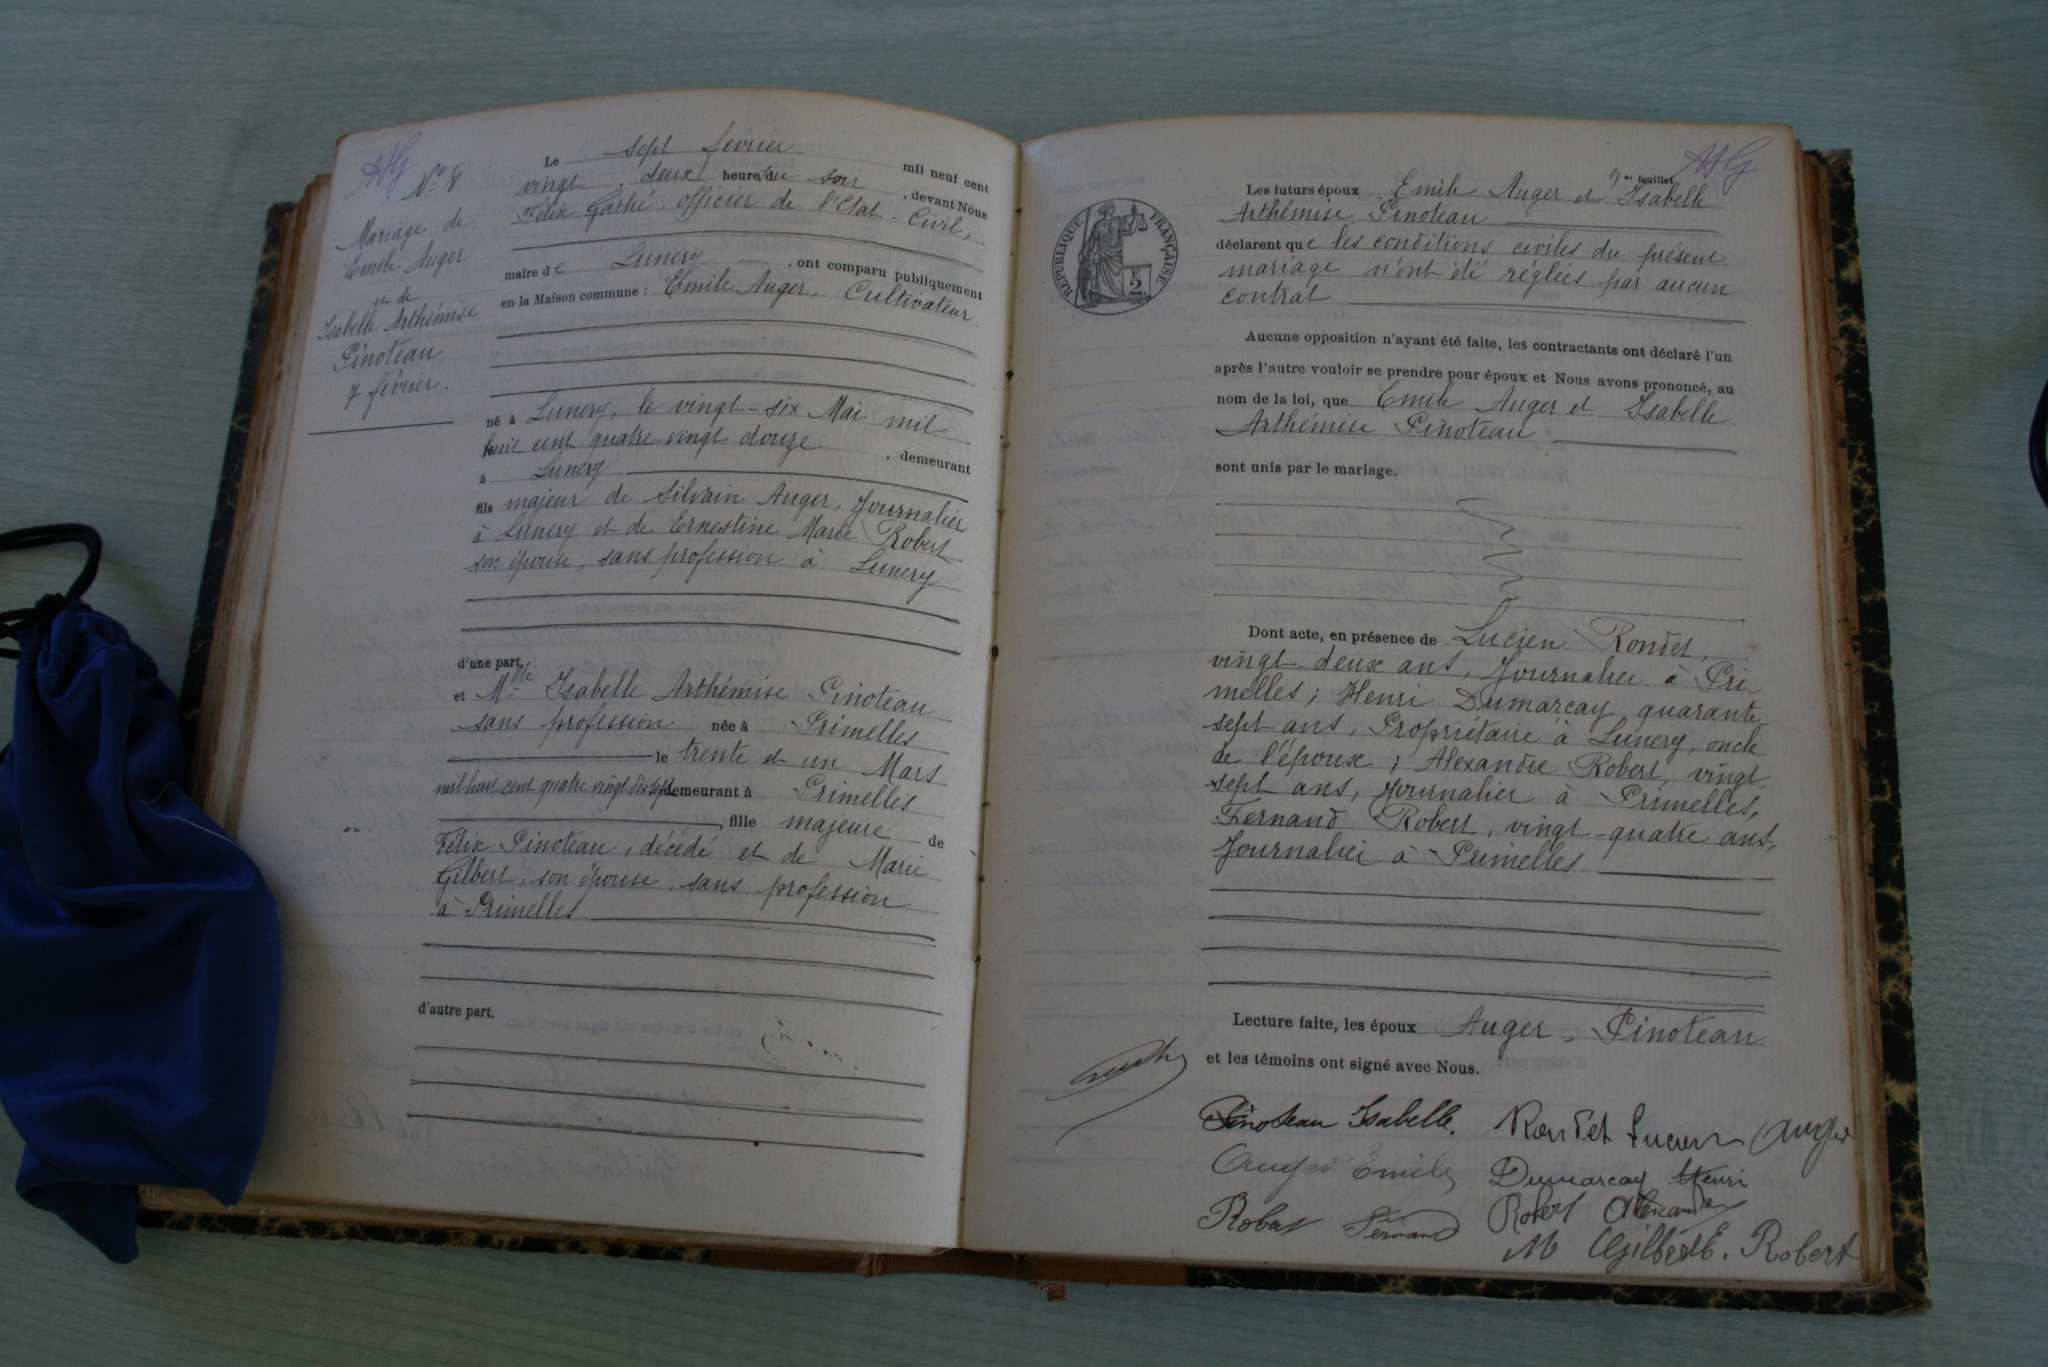 AG
Nº 8
Mariage de
Emile Auger
et de
Isabelle Arthémise
Pinoteau
7 février.
Le sept février mil neuf cent
vingt, deux heure du soir, devant Nous
Félix Gashé, officier de l'Etat-Civil,
maire de Lunery, ont comparu publiquement
en la Maison commune : Emile Auger, Cultivateur
né à Lunery, le vingt-six Mai mil
huit cent quatre vingt douze, demeurant
à Lunery
fils majeur de Silvain Auger, Journalier
à Lunery et de Ernestine Marie Robert
son épouse, sans profession à Lunery
d'une part,
et Mlle Isabelle Arthémise Pinoteau
sans profession née à Primelles
le trente et un Mars
mil huit cent quatre vingt dix sept demeurant à Primelles
, fille majeure de
Félix Pinoteau, décédé et de Marie
Gilbert, son épouse, sans profession
à Primelles
d'autre part.
AG
9me feuillet
Les futurs époux Emile Auger et Isabelle
Arthémise Pinoteau
déclarent que les conditions civiles du présent
mariage n'ont été réglées par aucun
contrat
RÉPUBLIQUE FRANÇAISE
Aucune opposition n'ayant été faite, les contractants ont déclaré l'un
après l'autre vouloir se prendre pour époux et Nous avons prononcé, au
nom de la loi, que Emile Auger et Isabelle
Arthémise Pinoteau
sont unis par le mariage.
Dont acte, en présence de Lucien Rondet,
vingt-deux ans, Journalier à Pri-
melles; Henri Dumarcay quarante
sept ans, Propriétaire à Lunery, oncle
de l'épouse; Alexandre Robert, vingt
sept ans, Journalier à Primelles,
Fernand Robert, vingt-quatre ans,
Journalier à Primelles
Lecture faite, les époux Auger, Pinoteau
et les témoins ont signé avec Nous.
Pinoteau Isabelle. Rondet Lucien Auger
Auger Emile Dumarcay Henri
Robert Fernand Robert Alexandre
M Gilbert E. Robert